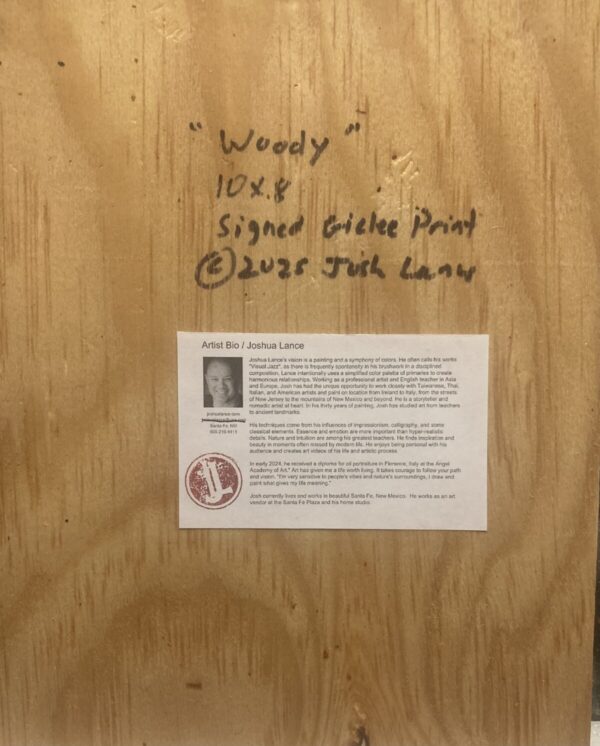 "Woody"
10x8
Signed Giclee Print
© 2025 Josh Lance
Artist Bio / Joshua Lance
Joshua Lance's vision is a painting and a symphony of colors. He often calls his works
"Visual Jazz", as there is frequently spontaneity in his brushwork in a disciplined
composition. Lance intentionally uses a simplified color palette of primaries to create
harmonious relationships. Working as a professional artist and English teacher in Asia
and Europe, Josh has had the unique opportunity to work closely with Taiwanese, Thai,
Italian, and American artists and paint on location from Ireland to Italy, from the streets
of New Jersey to the mountains of New Mexico and beyond. He is a storyteller and
nomadic artist at heart. In his thirty years of painting, Josh has studied art from teachers
to ancient landmarks.
joshualance.com
Santa Fe, NM
His techniques come from his influences of impressionism, calligraphy, and some
classical elements. Essence and emotion are more important than hyper-realistic
details. Nature and intuition are among his greatest teachers. He finds inspiration and
beauty in moments often missed by modern life. He enjoys being personal with his
audience and creates art videos of his life and artistic process.
In early 2024, he received a diploma for oil portraiture in Florence, Italy at the Angel
Academy of Art." Art has given me a life worth living. It takes courage to follow your path
and vision. "I'm very sensitive to people's vibes and nature's surroundings, I draw and
paint what gives my life meaning."
Josh currently lives and works in beautiful Santa Fe, New Mexico. He works as an art
vendor at the Santa Fe Plaza and his home studio.